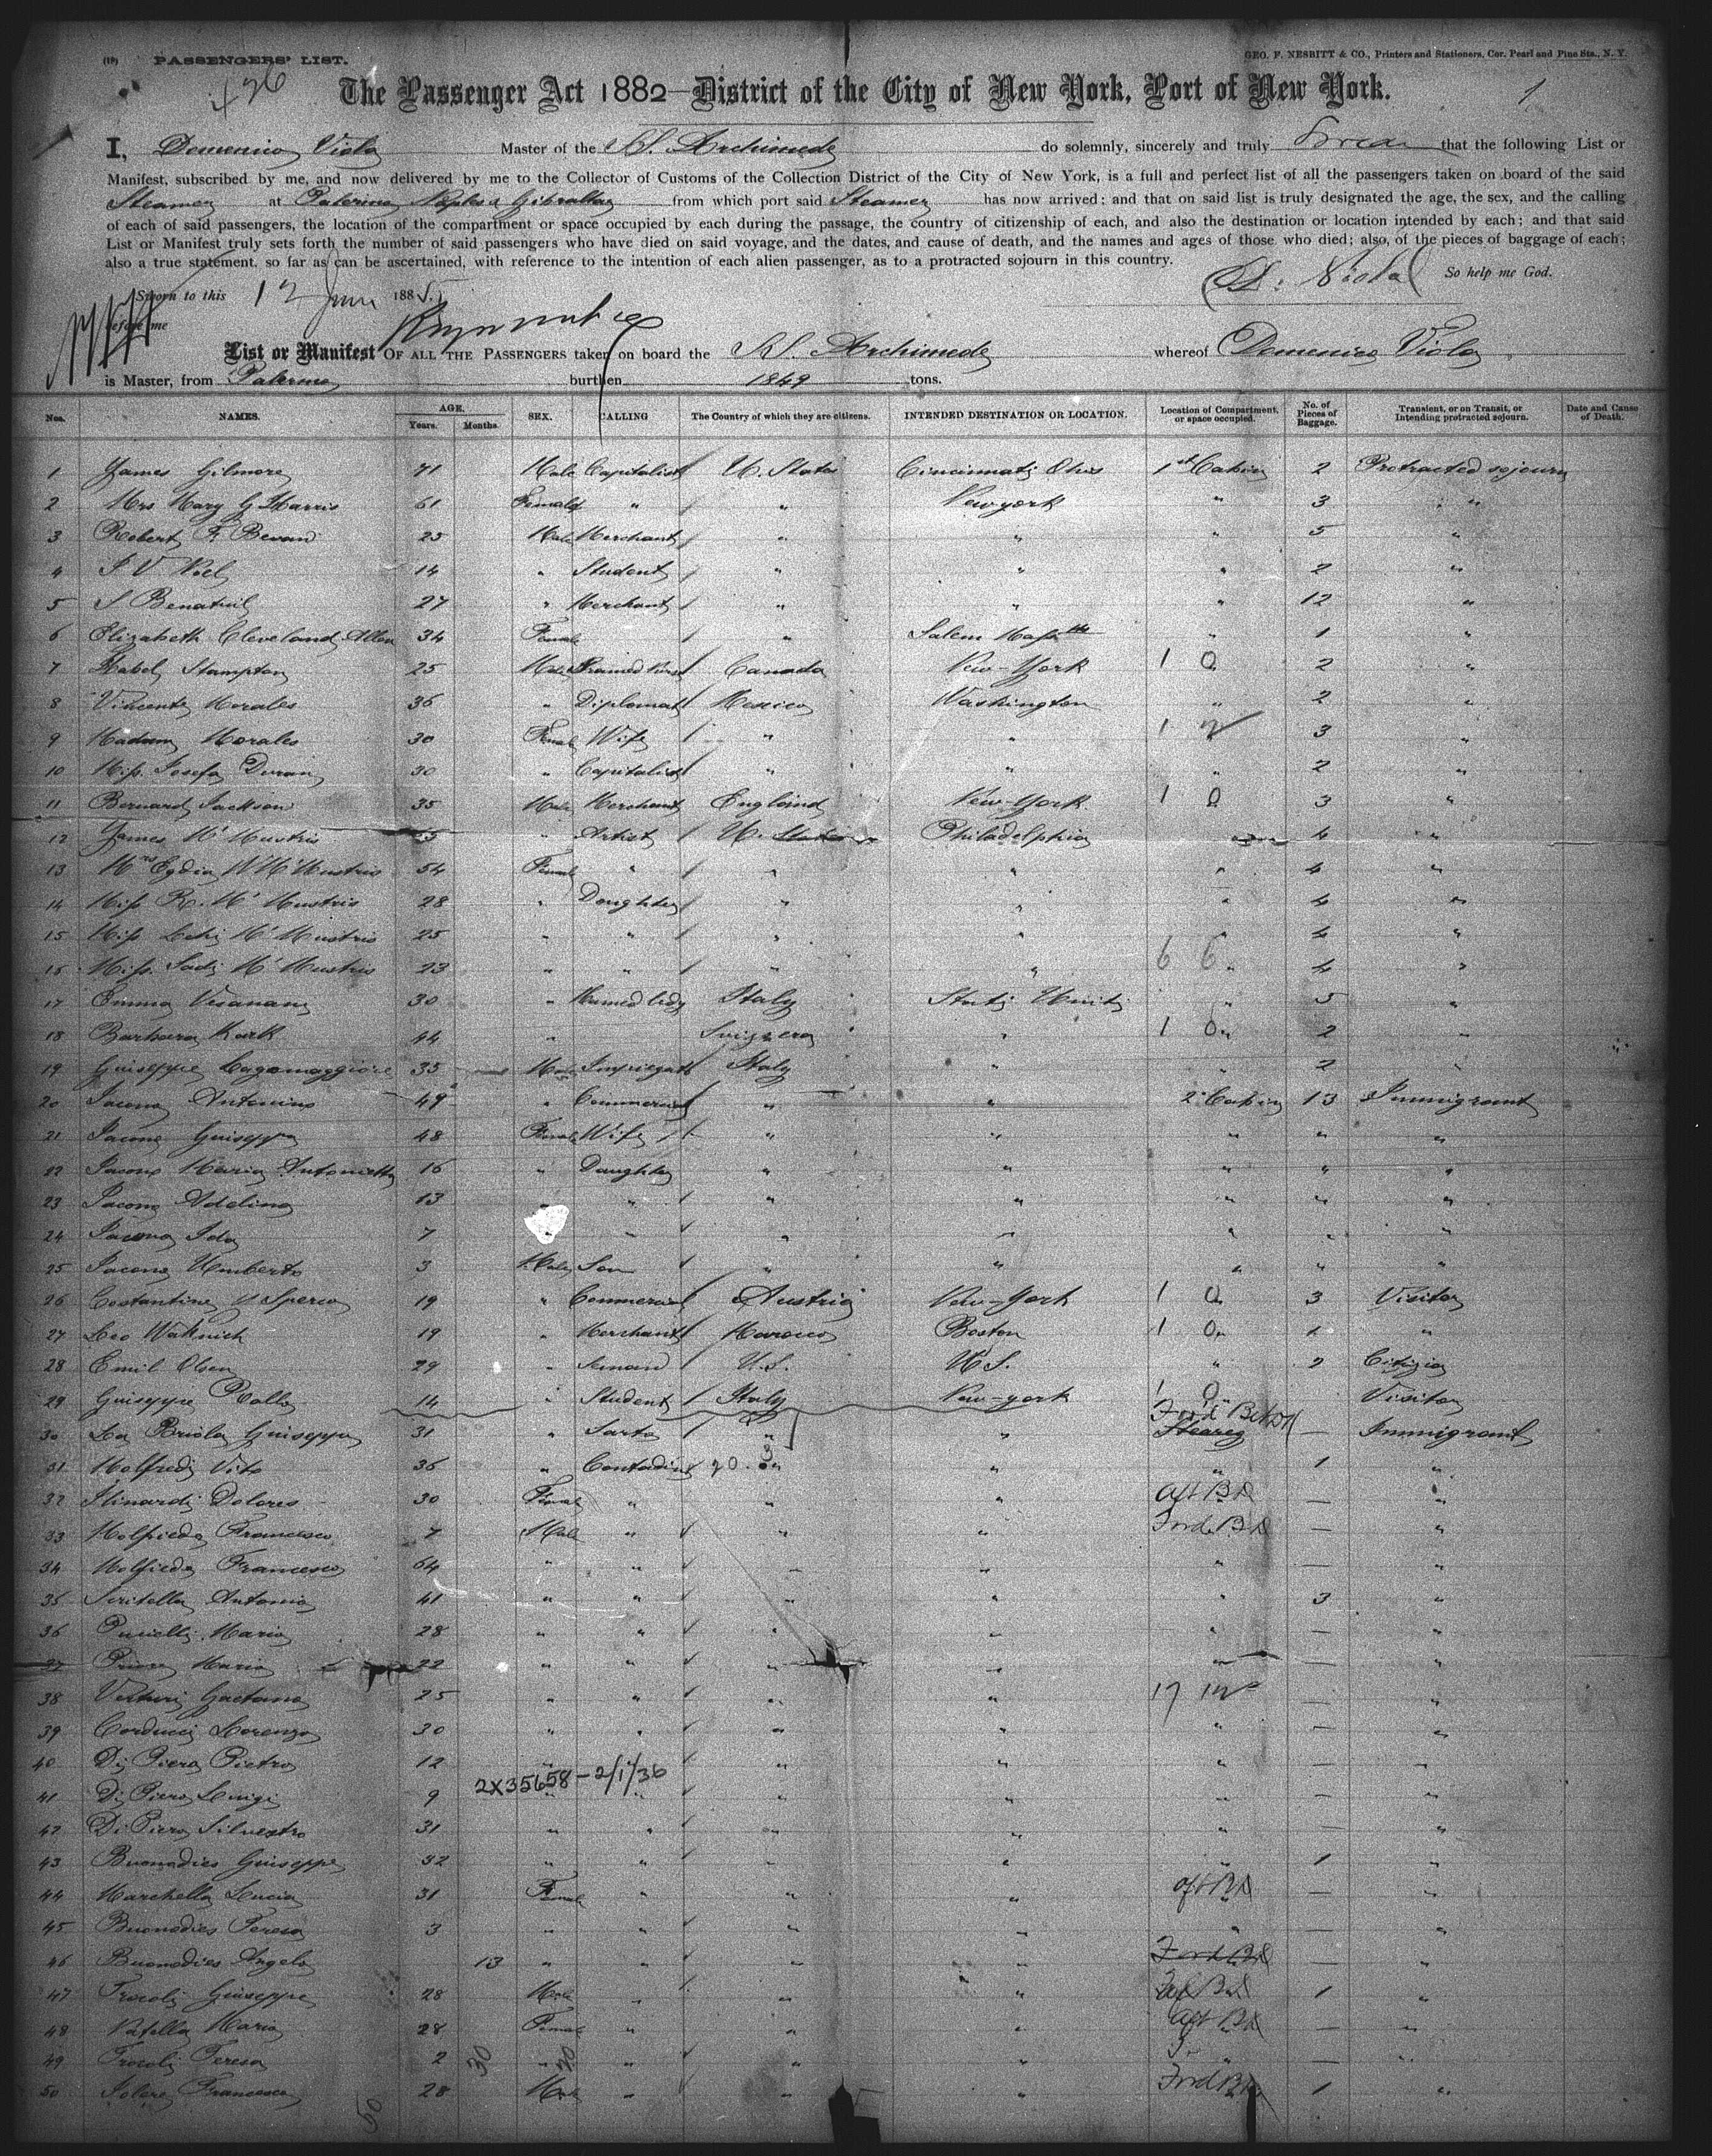 (19) PASSENGERS' LIST.
GEO. F. NESBITT & CO., Printers and Stationers, Cor. Pearl and Pine Sts., N. Y.
The Passenger Act 1882—District of the City of New York, Port of New York.
1
I, Domenico Viola Master of the SS. Archimede do solemnly, sincerely and truly Swear that the following List or
Manifest, subscribed by me, and now delivered by me to the Collector of Customs of the Collection District of the City of New York, is a full and perfect list of all the passengers taken on board of the said
Steamer at Palermo, Naples & Gibraltar from which port said Steamer has now arrived; and that on said list is truly designated the age, the sex, and the calling
of each of said passengers, the location of the compartment or space occupied by each during the passage, the country of citizenship of each, and also the destination or location intended by each; and that said
List or Manifest truly sets forth the number of said passengers who have died on said voyage, and the dates, and cause of death, and the names and ages of those who died; also, of the pieces of baggage of each;
also a true statement, so far as can be ascertained, with reference to the intention of each alien passenger, as to a protracted sojourn in this country.
D. Viola So help me God.
Sworn to this 12 June 188
before me
List or Manifest OF ALL THE PASSENGERS taken on board the SS. Archimede whereof Domenico Viola
is Master, from Palermo burthen 1849 tons.
Nos. NAMES. AGE. Years. Months. SEX. CALLING The Country of which they are citizens. INTENDED DESTINATION OR LOCATION. Location of Compartment, or space occupied. No. of Pieces of Baggage. Transient, or on Transit, or Intending protracted sojourn. Date and Cause of Death.
1 James Gilmore 71 Male Capitalist U. States Cincinnati Ohio 1st Cabin 2 Protracted sojourn
2 Mrs Mary G Harris 61 Female " / " New york " 3 "
3 Robert F. Bevan 25 Male Merchant / " " " 5 "
4 14 " Student / " " " 2 "
5 27 " Merchant / " " " 12 "
6 Elizabeth Cleveland Allen 34 Female / " Salem Mass " 1 "
7 Stampton 25 Male Trained Nurse Canada New-York 1 0 2 "
8 Vincente Morales 36 " Diplomat / Mexico Washington " 2 "
9 Madam Morales 30 Female Wife / " " 1 2 3 "
10 Miss Josefa Duran 30 " Capitalist " " " 2 "
11 Bernard Jackson 35 Male Merchant England New-York 1 0 3 "
12 James " Artist / U. States Philadelphia " 4 "
13 Mrs 54 Female " / " " " 4 "
14 Miss R. 28 " Daughter / " " " 4 "
15 Miss 25 " " / " " " 4 "
16 Miss 23 " " / " " 6 6 4 "
17 Emma 30 " Married lady Italy Stati Uniti " 5 "
18 Barbara 44 " Svizzera " 1 0 2 "
19 Guiseppe Cagamaggiore 35 Male Impiegato Italy " " 2 "
20 Jacono Antonino 49 " Commercial " " 2d Cabin 13 Immigrant
21 Jacono Guiseppa 48 Female Wife / " " " " "
22 Jacono Maria Antonietta 16 " Daughter " " " " "
23 Jacono Adelina 13 " " " " " " "
24 Jacono Ida 7 " " " " " " "
25 Jacono Umberto 3 Male Son " " " " "
26 Costantine 19 " Commercial Austria New-York 1 0 3 Visitor
27 Leo 19 " Merchant / Marocco Boston 1 0 "
28 Emil Olsen 29 " / U.S. U.S. " 2
29 Guiseppe 14 " Student / Italy New-york 1 0 Visitor
30 La Guiseppe 31 " Sarto / " " Steareg — Immigrant
31 Vito 36 " Contadino 20 " " " 1 "
32 Dolores 30 Female " " " Aft B D — "
33 Francesco 7 Male " " " Ford B D — "
34 Francesco 64 " " " " " — "
35 Antonio 41 " " " " " 3 "
36 Maria 28 " " " " " — "
37 Maria 22 " " " " " — "
38 Gaetano 25 " " " " 17 — "
39 Carducci Lorenzo 30 " " " " " — "
40 Di Piero Pietro 12 " " " " " — "
2X35658 – 2/1/36
41 Di Piero Luigi 9 " " " " " — "
42 Di Piero Silvestro 31 " " " " " — "
43 Buonodies Guiseppe 32 " " " " " 1 "
44 Marchella Lucia 31 Female " " " Aft B D — "
45 Buonodies Teresa 3 " " " " " — "
46 Buonodies Angela 13 " " " " Ford B D — "
47 Guiseppe 28 Male " " " B D 1 "
48 Maria 28 Female " " " Aft B D — "
49 Teresa 2 " " " " " — "
50 Francesco 28 Male " " " Ford B D 1 "
30 20
50